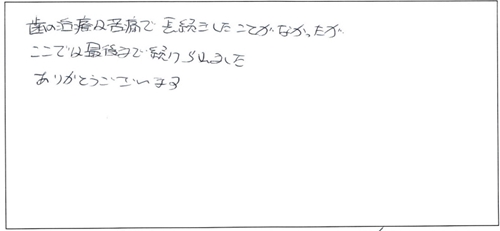 歯の治療は苦痛で長続きしたことがなかったが
ここでは最後まで続けられました
ありがとうございます